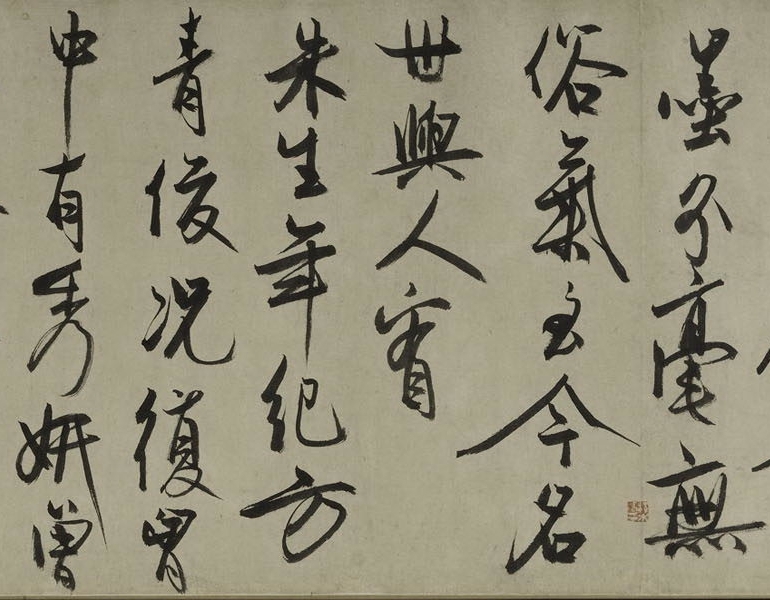 墨分毫無
俗氣至今名
世與人
朱生年紀方
青俊況復胷
中有秀妍曾